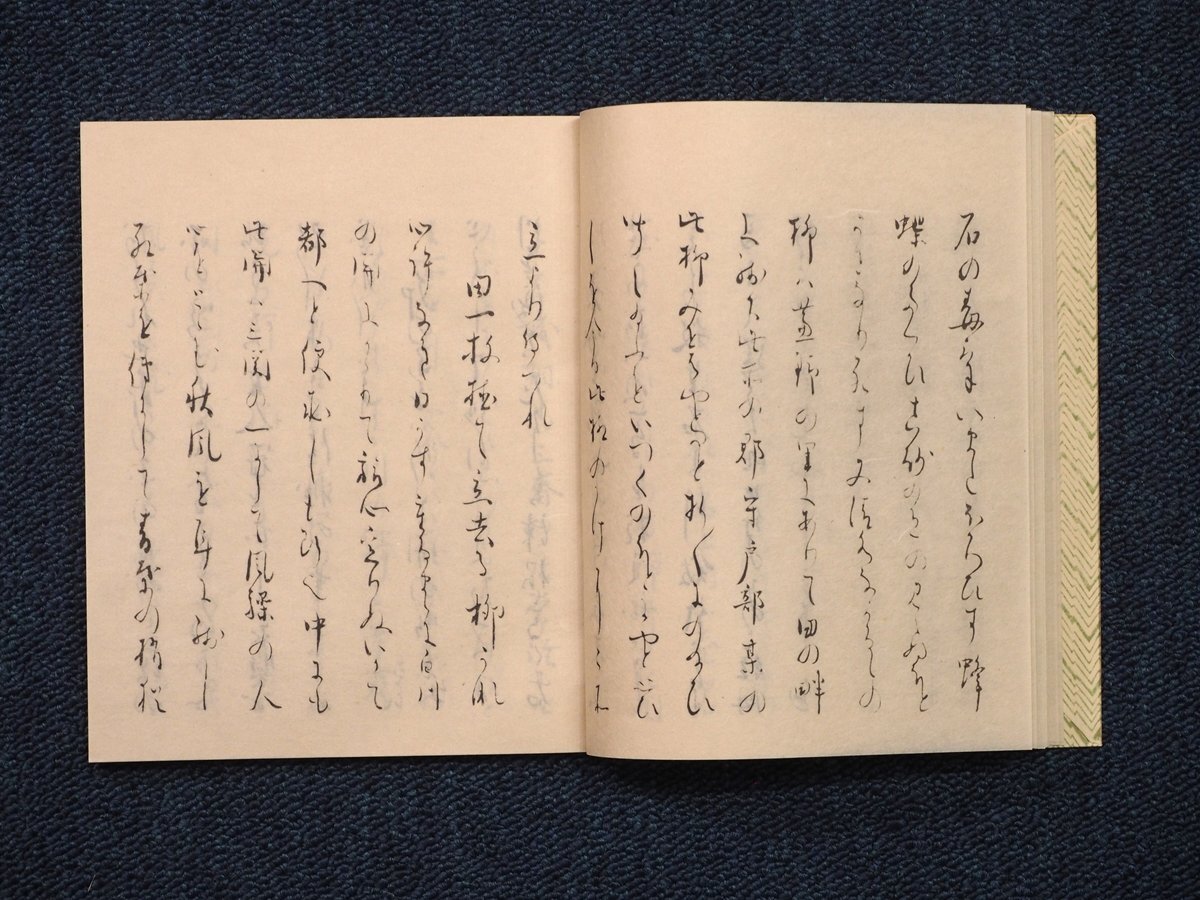 石の毒気いまたほろひす蜂
蝶のたくひ真砂の色の見えぬほと
かさなり死す又清水なかるゝの
柳ハ蘆野の里にありて田の畔
に残る此所の郡守戸部某の
此柳みせはやなと折〱にの給ひ
聞え給ふをいつくのほとにやと思ひ
しを今日此柳のかけにこそ
立より侍つれ
田一枚植て立去る柳かな
心許なき日かす重るまゝに白川
の関にかゝりて旅心定りぬいかて
都へと便求しも断也中にも
此関ハ三関の一にして風騒の人
心をとゝむ秋風を耳に残し
紅葉を俤にして青葉の梢猶